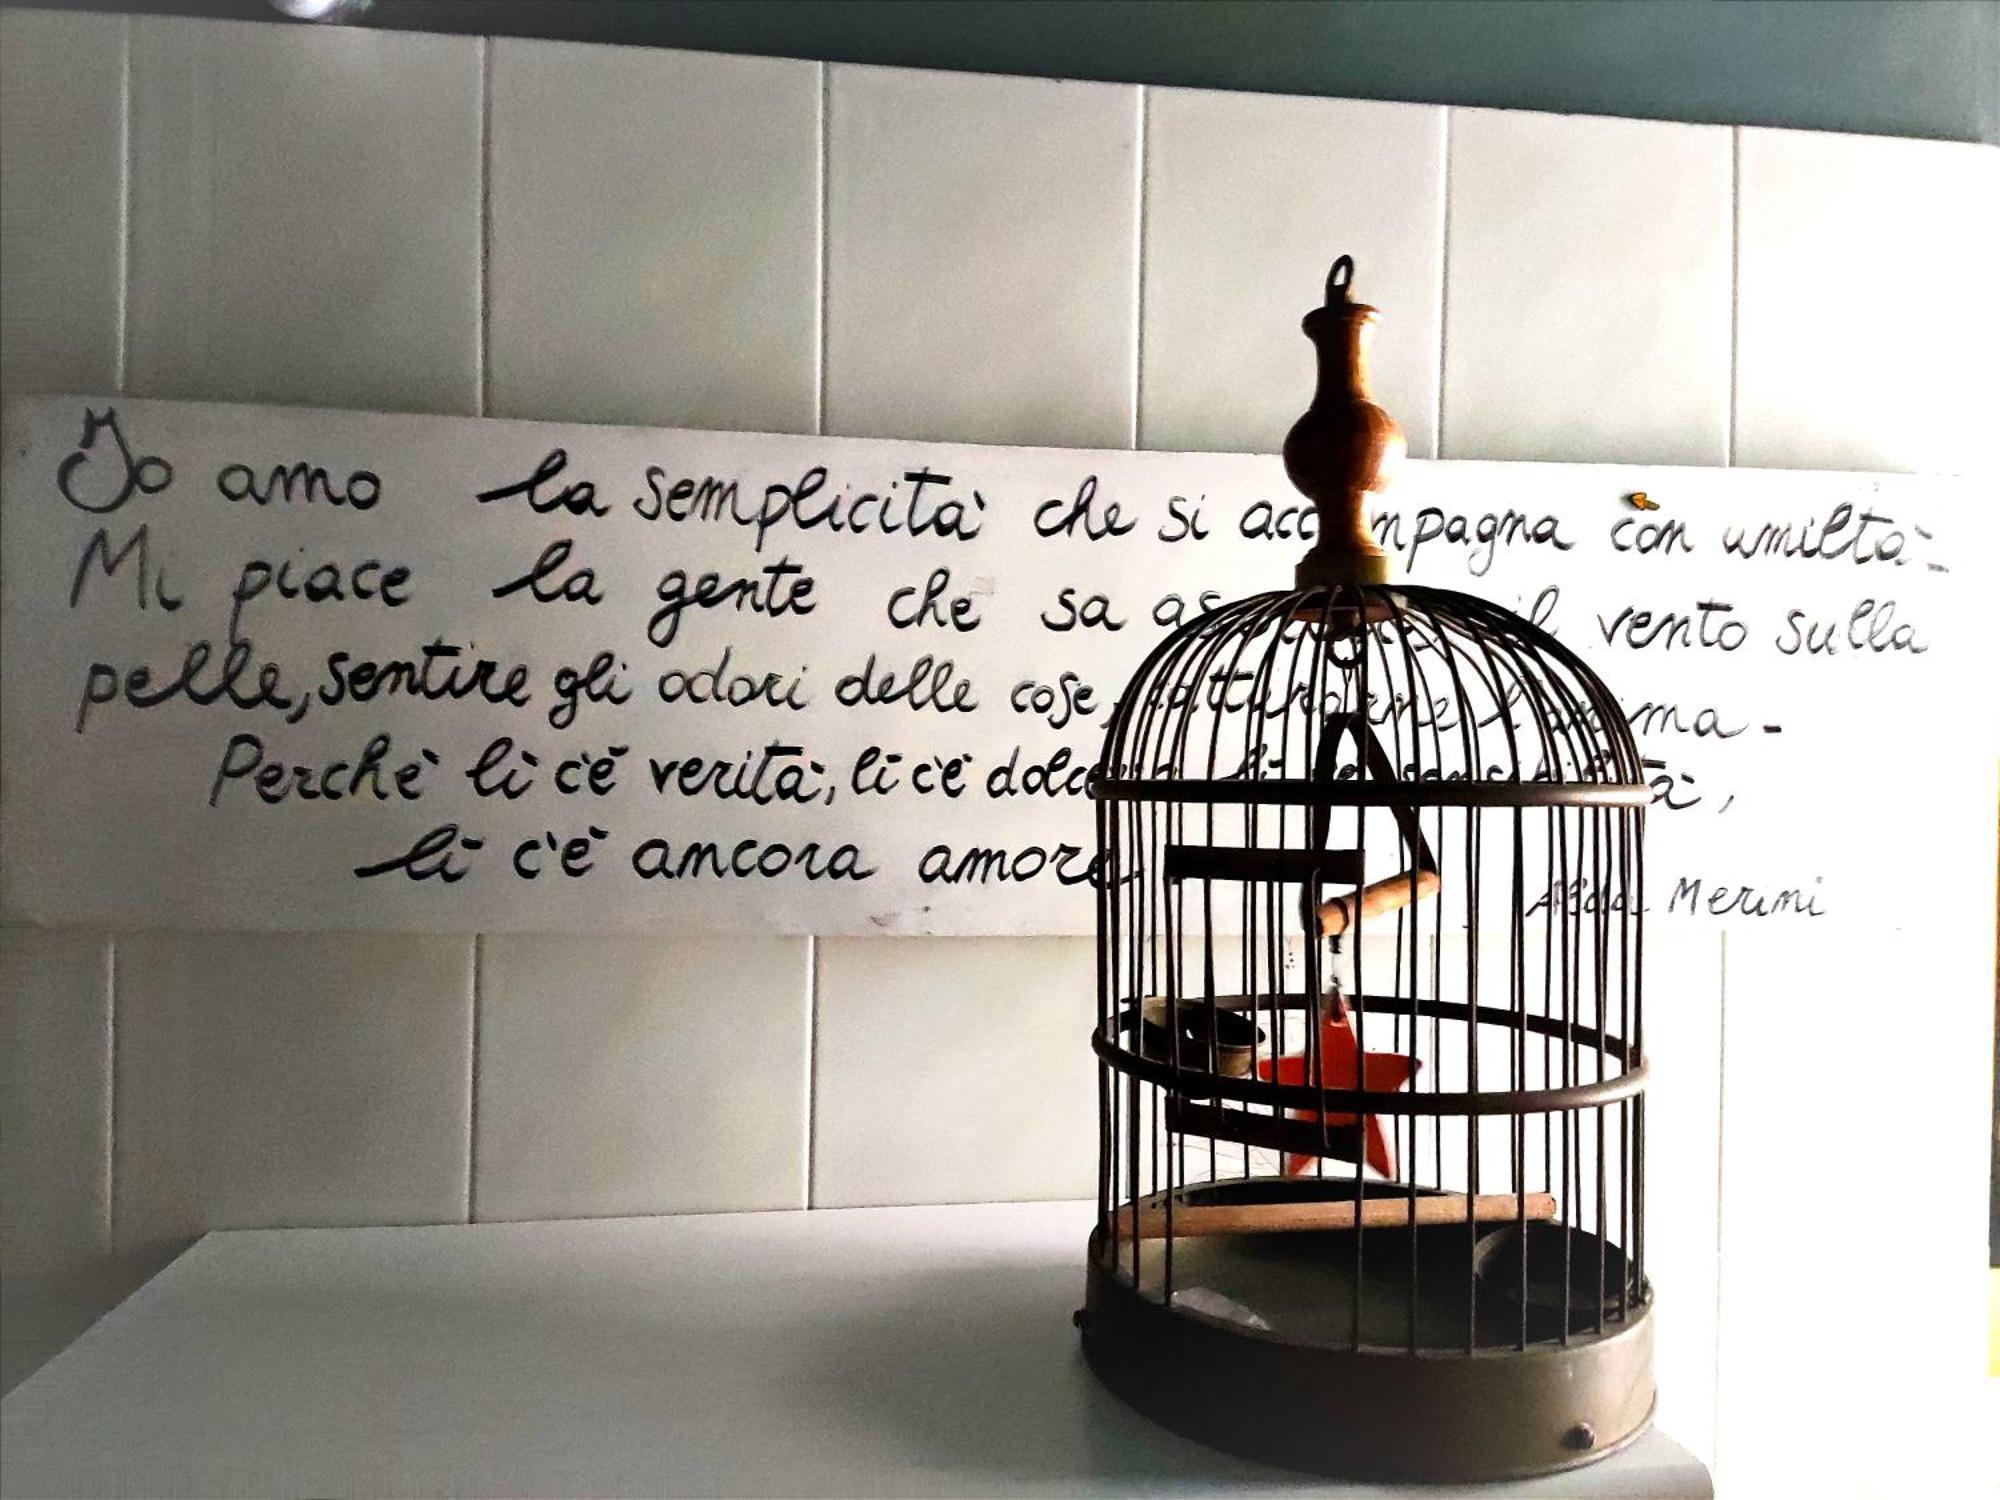 Io amo la semplicità che si accompagna con umiltà-
Mi piace la gente che sa ascoltare il vento sulla
pelle, sentire gli odori delle cose, catturarne l'anima-
Perchè lì c'è verità, lì c'è dolcezza, lì c'è sensibilità,
lì c'è ancora amore-
Alda Merini